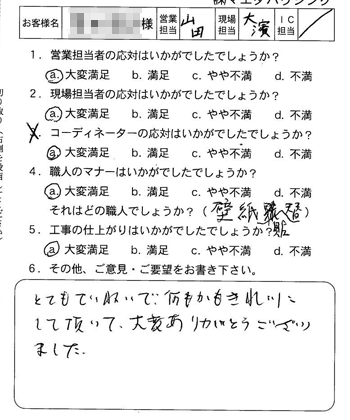 ㈱マエダハウジング
お客様名 様 営業担当 山田 現場担当 大濱 IC担当
1．営業担当者の応対はいかがでしたでしょうか？
a. 大変満足 b. 満足 c. やや不満 d. 不満
2．現場担当者の応対はいかがでしたでしょうか？
a. 大変満足 b. 満足 c. やや不満 d. 不満
コーディネーターの応対はいかがでしたでしょうか？
a. 大変満足 b. 満足 c. やや不満 d. 不満
4．職人のマナーはいかがでしたでしょうか？
a. 大変満足 b. 満足 c. やや不満 d. 不満
それはどの職人でしょうか？（壁紙貼替）
5．工事の仕上がりはいかがでしたでしょうか？
a. 大変満足 b. 満足 c. やや不満 d. 不満
6．その他、ご意見・ご要望をお書き下さい。
とてもていねいで、何もかもきれいに
して頂いて、大変ありがとうござい
ました。